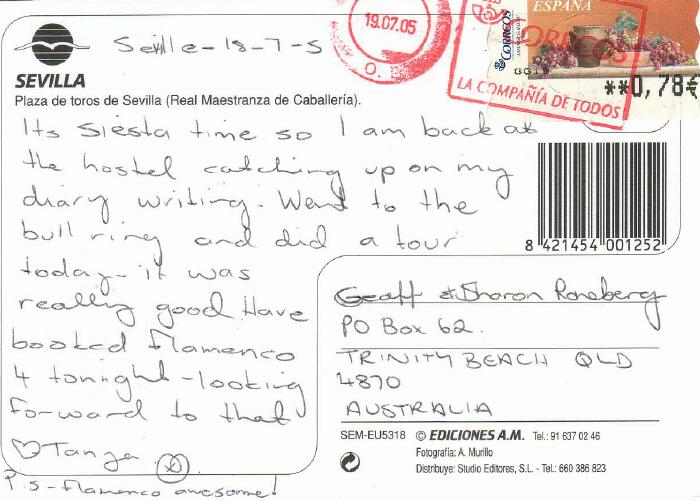 Seville - 18-7-5
19.07.05
O.
CORREOS
ESPAÑA
CORREOS
LA COMPAÑÍA DE TODOS
**0,78€
SEVILLA
Plaza de toros de Sevilla (Real Maestranza de Caballería).
Its Siesta time so I am back at
the hostel catching up on my
diary writing. Went to the
bull ring and did a tour
today - it was
really good Have
booked flamenco
4 tonight - looking
forward to that
♡ Tanya
P.S - Flamenco awesome!
8 421454 001252
Geoff & Sharon Roneberg
PO Box 62.
TRINITY BEACH QLD
4870
AUSTRALIA
SEM-EU5318 © EDICIONES A.M. Tel.: 91 637 02 46
Fotografía: A. Murillo
Distribuye: Studio Editores, S.L. - Tel.: 660 386 823